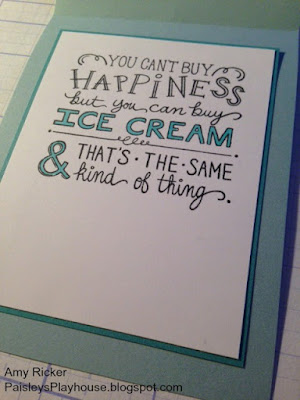 YOU CAN'T BUY
HAPPINESS
but you can buy
ICE CREAM
& THAT'S · THE · SAME
kind of thing.
Amy Ricker
PaisleysPlayhouse.blogspot.com